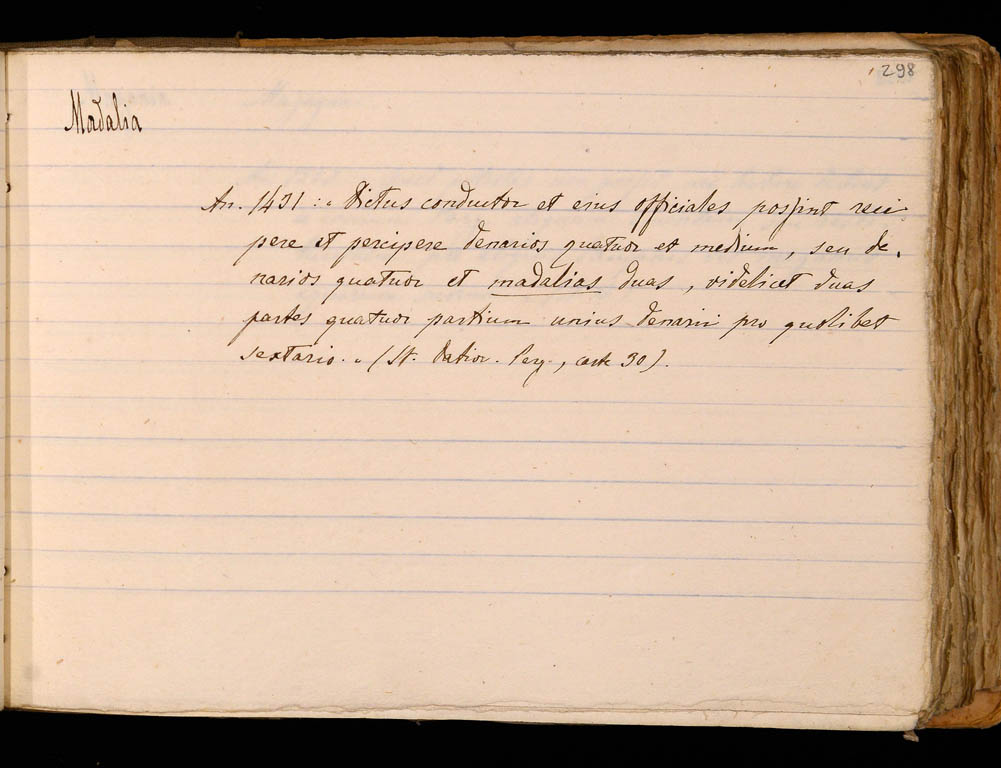 298
Madalia
An. 1431 : « Dictus conductor et eius officiales possint reci-
pere et percipere denarios quatuor et medium, seu de-
narios quatuor et madalias duas, videlicet duas
partes quatuor partium unius denarii pro quolibet
sextario. » (St. datior. Perg., cart 30).